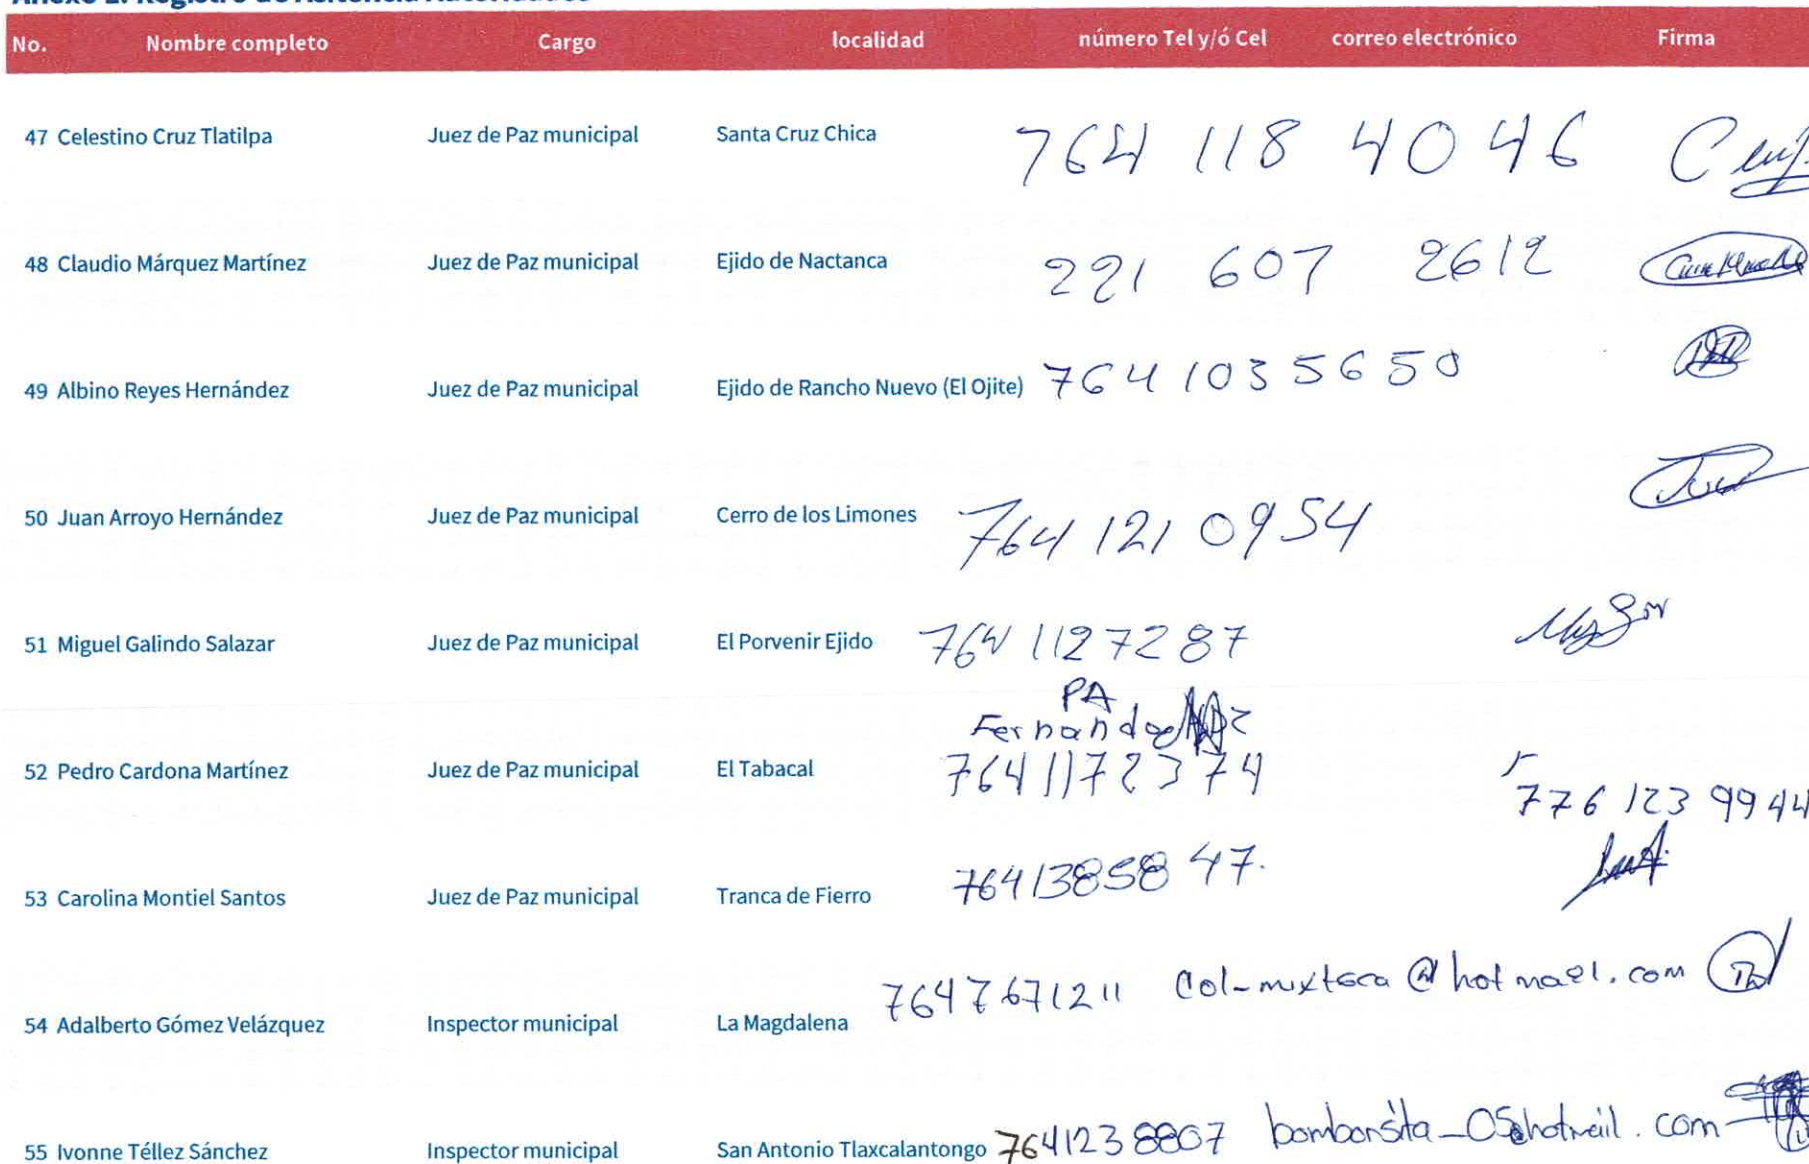 No. Nombre completo Cargo localidad número Tel y/ó Cel correo electrónico Firma
47 Celestino Cruz Tlatilpa Juez de Paz municipal Santa Cruz Chica 764 118 4046
48 Claudio Márquez Martínez Juez de Paz municipal Ejido de Nactanca 221 607 2612
49 Albino Reyes Hernández Juez de Paz municipal Ejido de Rancho Nuevo (El Ojite) 764 1035650
50 Juan Arroyo Hernández Juez de Paz municipal Cerro de los Limones 764 121 0954
51 Miguel Galindo Salazar Juez de Paz municipal El Porvenir Ejido 764 1127287
PA
Fernando
52 Pedro Cardona Martínez Juez de Paz municipal El Tabacal 764 1172374 776 123 9944
53 Carolina Montiel Santos Juez de Paz municipal Tranca de Fierro 7641385847.
54 Adalberto Gómez Velázquez Inspector municipal La Magdalena 7647671211 Col-mixteca@hotmail.com
55 Ivonne Téllez Sánchez Inspector municipal San Antonio Tlaxcalantongo 7641238807